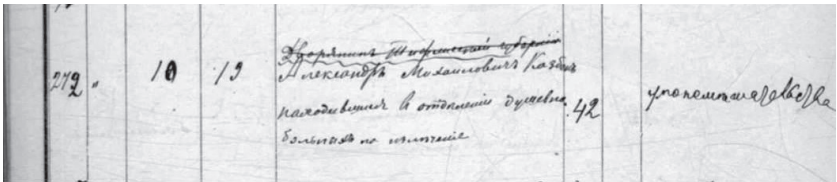 272 " 10 13 Дворянинъ Тифлисской губернiи
Александръ Михаиловичъ Казбекъ
находившiйся в отдѣленiи душевно 42
больныхъ на излеченiе